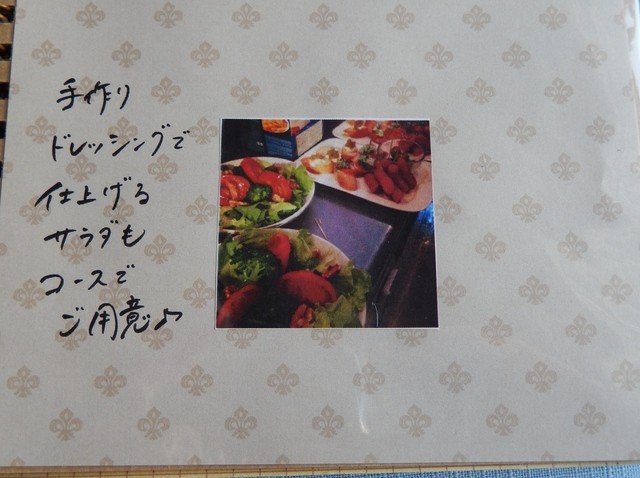 手作り
ドレッシングで
仕上げる
サラダも
コースで
ご用意♪